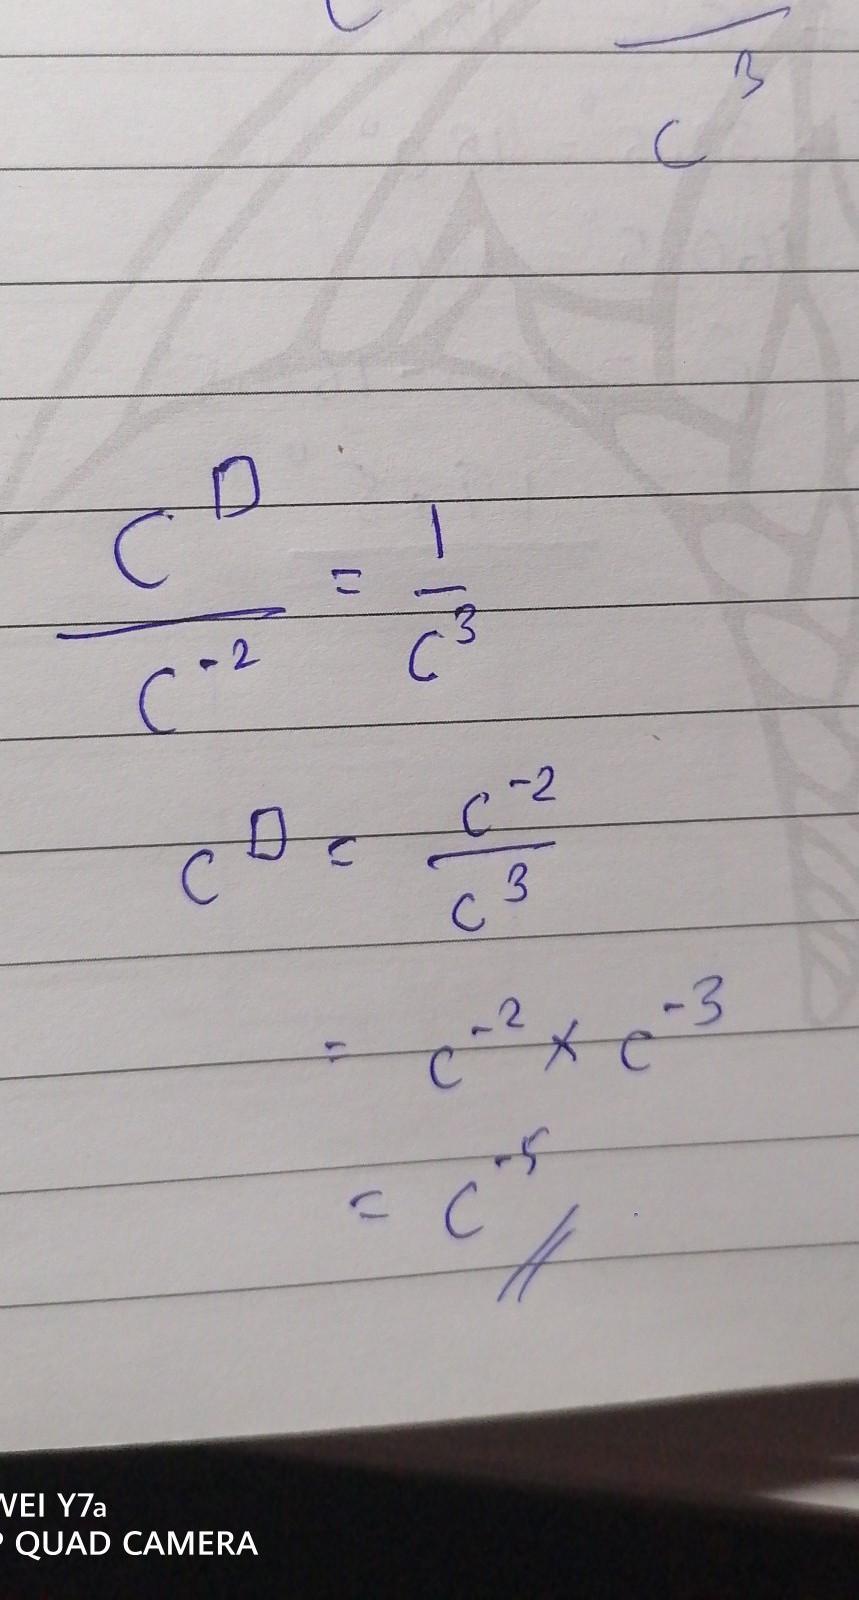 c^3
C^□ / C^-2 = 1 / c^3
c^□ = c^-2 / c^3
= c^-2 × c^-3
= c^-5 //
WEI Y7a
P QUAD CAMERA